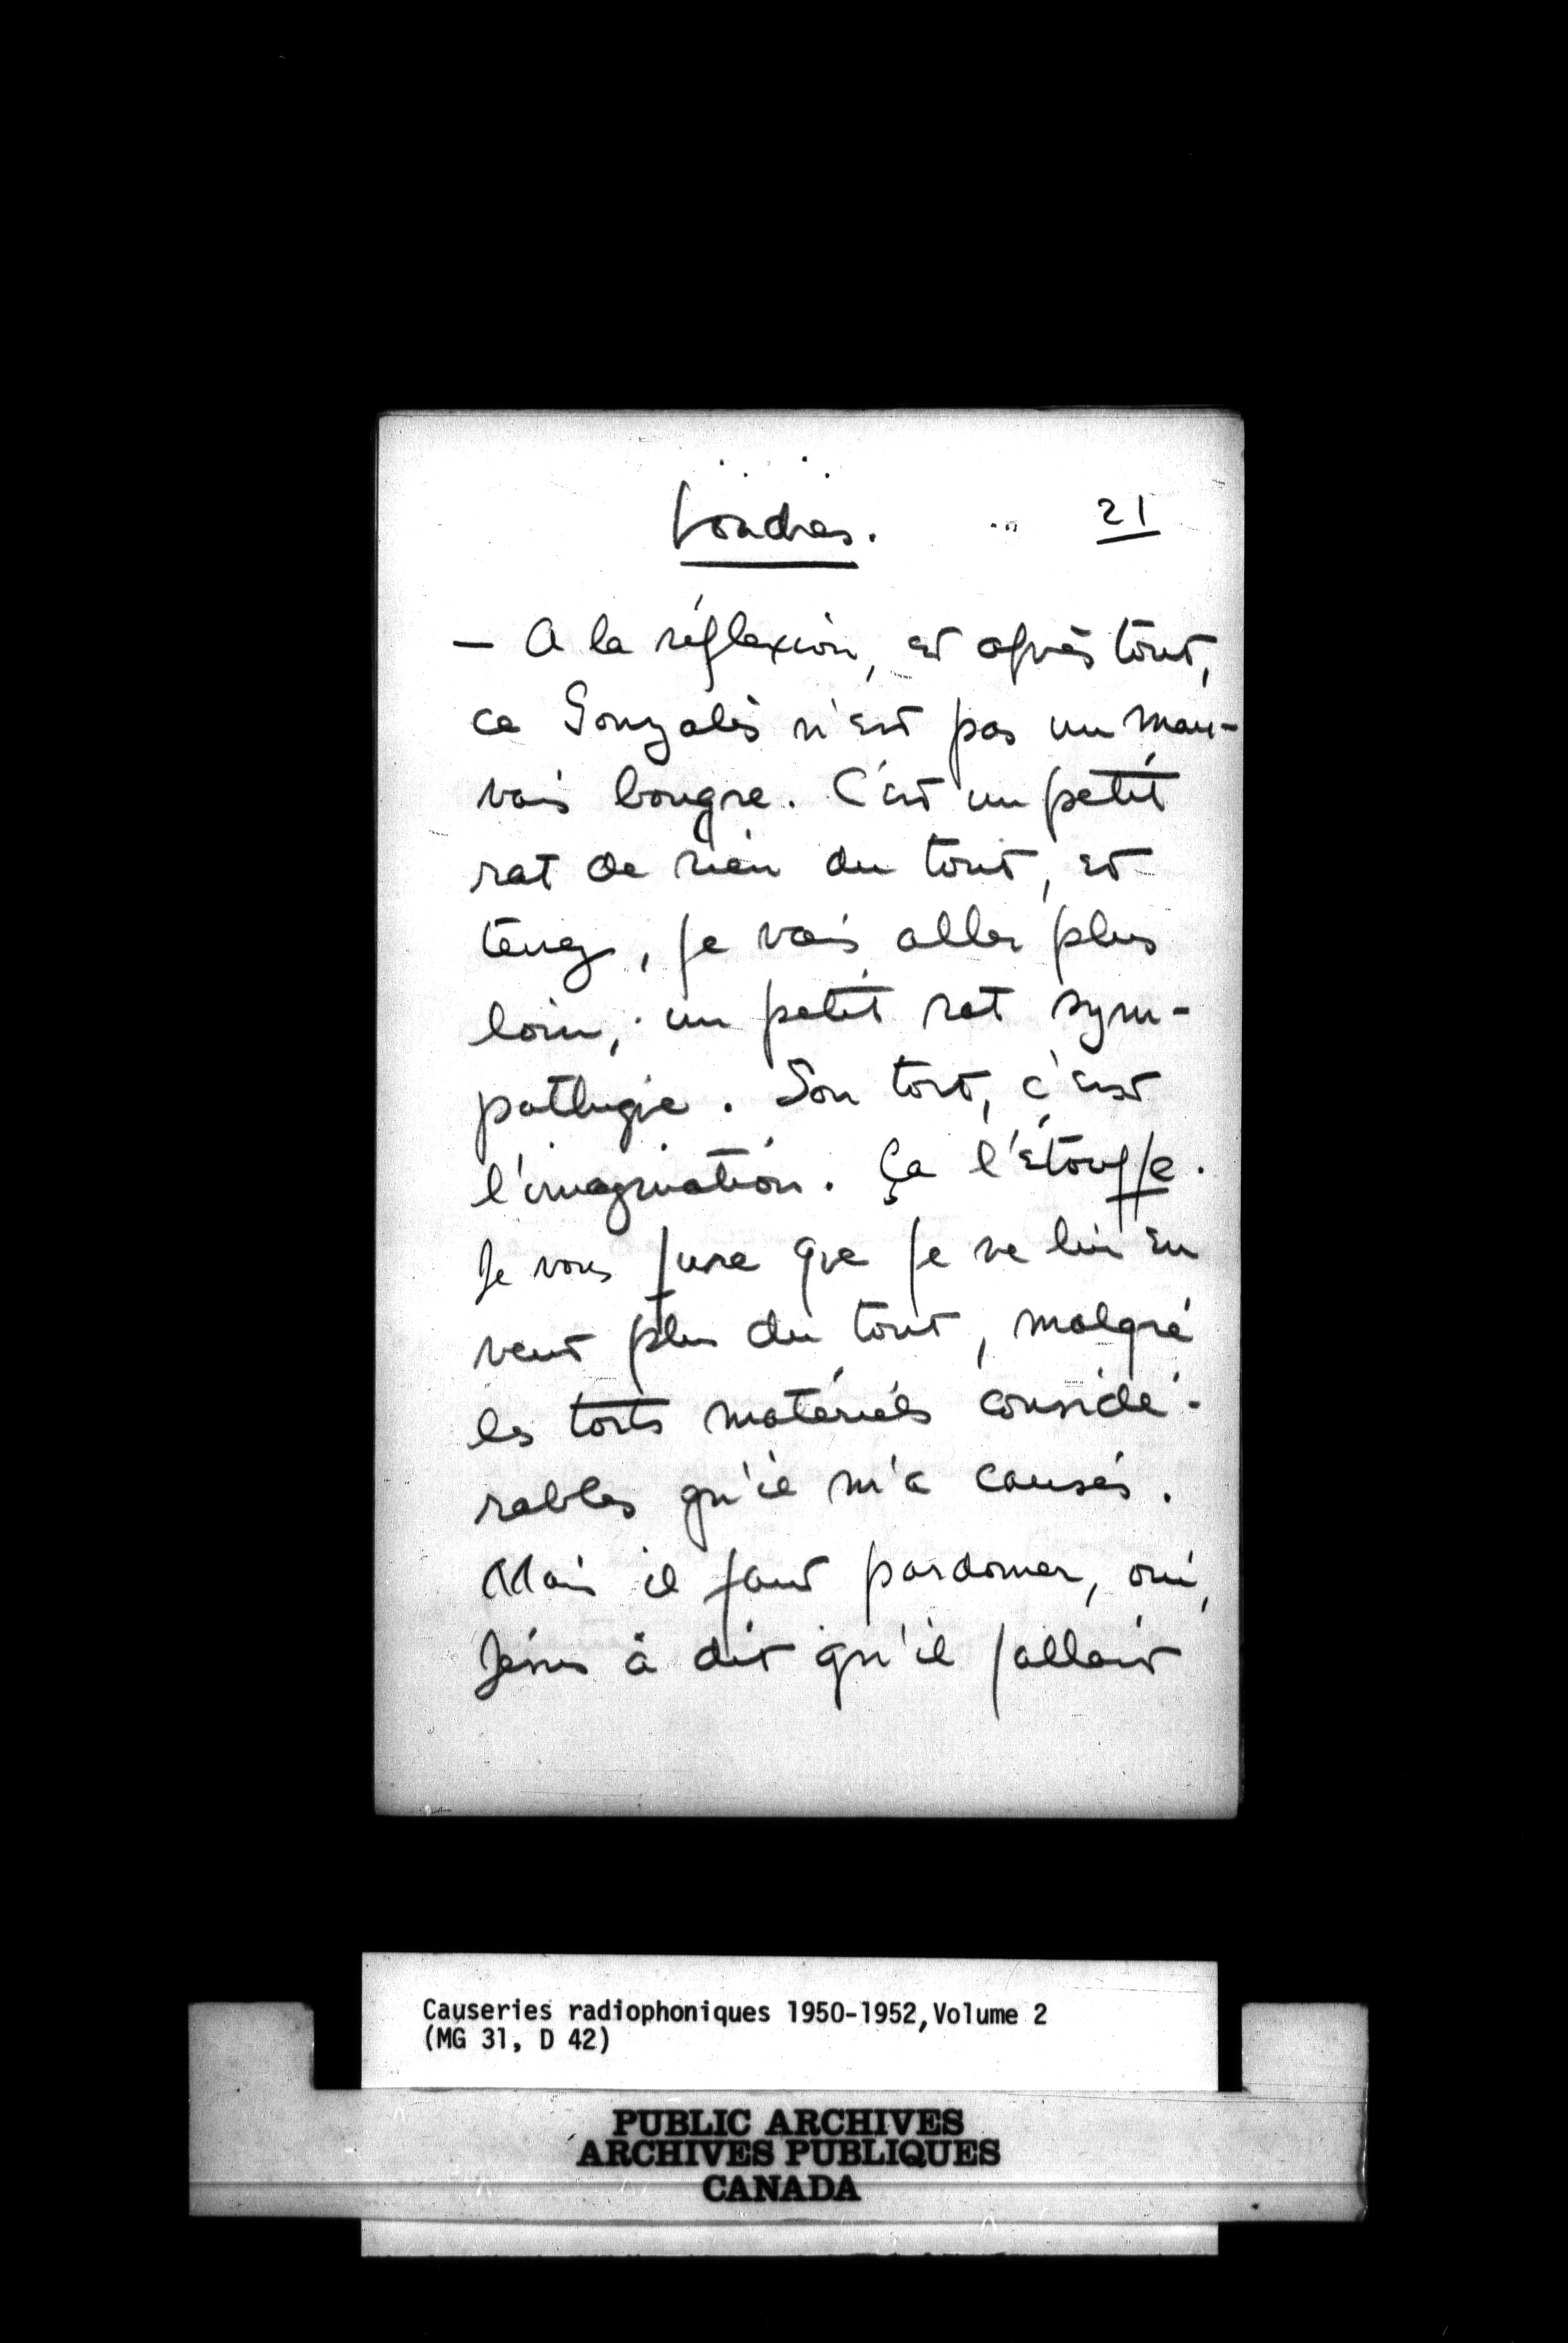 Londres.
21
— A la réflexion, et après tout,
ce Gonzalès n'est pas un mau-
vais bougre. C'est un petit
rat de rien du tout, et
tenez, je vais aller plus
loin, un petit rat sym-
pathique. Son tort, c'est
l'imagination. Ça l'étouffe.
Je vous jure que je ne lui en
veut plus du tout, malgré
les torts matériels considé-
rables qu'il m'a causés.
Mais il faut pardonner, oui,
Jésus a dit qu'il fallait
Causeries radiophoniques 1950-1952, Volume 2
(MG 31, D 42)
PUBLIC ARCHIVES
ARCHIVES PUBLIQUES
CANADA